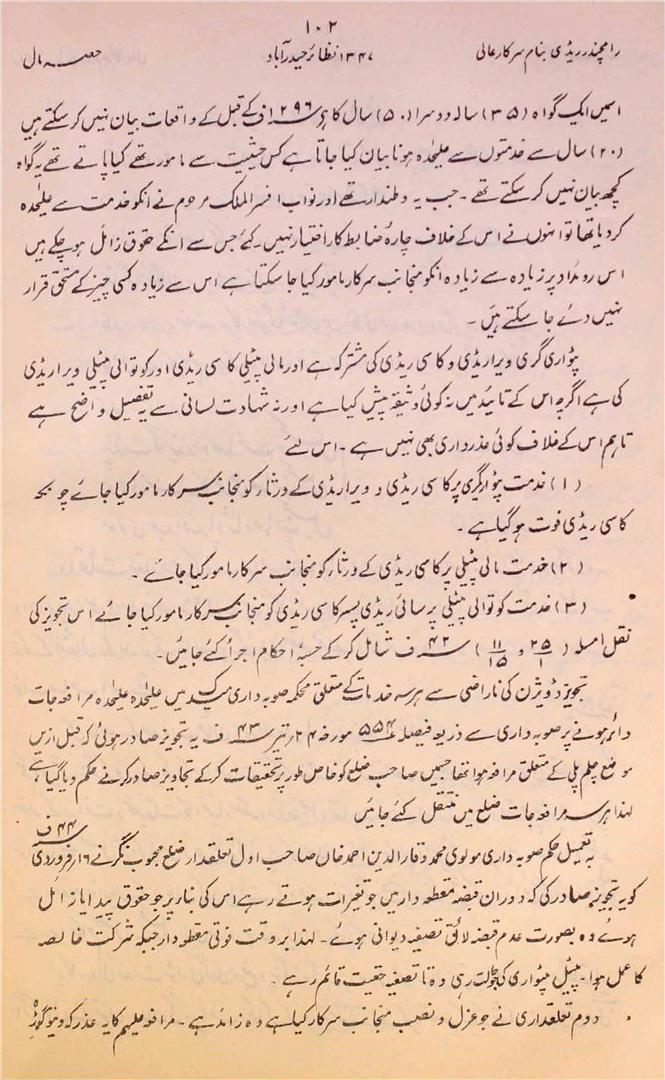 ۱۰۲
رامچندر ریڈی بنام سرکار عالی ۱۳۴۷ نظائر حیدرآباد حصہ مال
اسمیں ایک گواہ (۳۵) سالہ دوسرا (۵۰) سال کا ہے ۱۲۹۶ ف کے قبل کے واقعات بیان نہیں کرسکتے ہیں
(۲۰) سال سے خدمتوں سے علیحدہ ہونا بیان کیا جاتا ہے کس حیثیت سے مامور تھے کیا پاتے تھے یہ گواہ
کچھ بیان نہیں کرسکتے تھے ۔ جب یہ وطندار تھے اور نواب افسر الملک مرحوم نے انکو خدمت سے علیحدہ
کردیا تھا تو انہوں نے اس کے خلاف چارۂ ضابطہ کار اختیار نہیں ۔ کئے جس سے انکے حقوق زائل ہوچکے ہیں
اس روئداد پر زیادہ سے زیادہ انکو منجانب سرکار مامور کیا جاسکتا ہے اس سے زیادہ کسی چیز کے مستحق قرار
نہیں دئے جاسکتے ہیں ۔
پٹواری گری ویرا ریڈی و کاسی ریڈی کی مشترکہ ہے اور مالی پٹیلی کاسی ریڈی اور کوتوالی پٹیلی ویرا ریڈی
کی ہے اگرچہ اس کے تائید میں نہ کوئی وثیقہ پیش کیا ہے اور نہ شہادت لسانی سے یہ تفصیل واضح ہے
تاہم اس کے خلاف کوئی عذرداری بھی نہیں ہے ۔ اس لئے
(۱) خدمت پٹوارگری پر کاسی ریڈی و ویرا ریڈی کے ورثار کو منجانب سرکار مامور کیا جائے چونکہ
کاسی ریڈی فوت ہوگیا ہے ۔
(۲) خدمت مالی پٹیلی پر کاسی ریڈی کے ورثار کو منجانب سرکار مامور کیا جائے ۔
(۳) خدمت کوتوالی پٹیلی پر سائی ریڈی پسر کاسی ریڈی کو منجانب سرکار مامور کیا جائے اس تجویز کی
نقل امسلہ (۲۵/۱ و ۱۱/۱۵) ۴۲ ف شامل کرکے حسبہ احکام اجرأ کئے جائیں ۔
تجویز ڈویژن کی ناراضی سے ہرسہ خدمات کے متعلق محکمہ صوبہ داری میدک میں علیحدہ علیحدہ مرافعہ جات
دائر ہونے پر صوبہ داری سے ذریعہ فیصلہ ۵۵۴ مورخہ ۲۴ تیر ۴۳ ف یہ تجویز صادر ہوئی کہ قبل ازیں
موضع چلم پلی کے متعلق مرافعہ ہوا تھا جسمیں صاحب ضلع کو خاص طور پر تحقیقات کرکے تجاویز صادر کرنے حکم دیا گیا ہے
لہذا ہرسہ مرافعہ جات ضلع میں منتقل کئے جائیں
بہ تعمیل حکم صوبہ داری مولوی محمد وقار الدین احمد خاں صاحب اول تعلقدار ضلع محبوب نگر نے ۱۶ فروردی ۴۴ ف
کو یہ تجویز صادر کی کہ دوران قبضہ مقطعہ دار میں جو تغیرات ہوتے رہے اس کی بناء پر جو حقوق پیدا یا زائل
ہوئے وہ بصورت عدم قبضہ لائق تصفیہ دیوانی ہوئے ۔ لہذا بروقت فوتی مقطعہ دار جبکہ شرکت خالصہ
کا عمل ہوا ۔ پٹیل پٹواری کی جو حالت رہی وہ تا تصفیہ حقیت قائم رہے ۔
دوم تعلقداری نے جو عزل و نصب منجانب سرکار کیا ہے وہ زائد ہے ۔ مرافعہ علیہم کا یہ عذر کہ